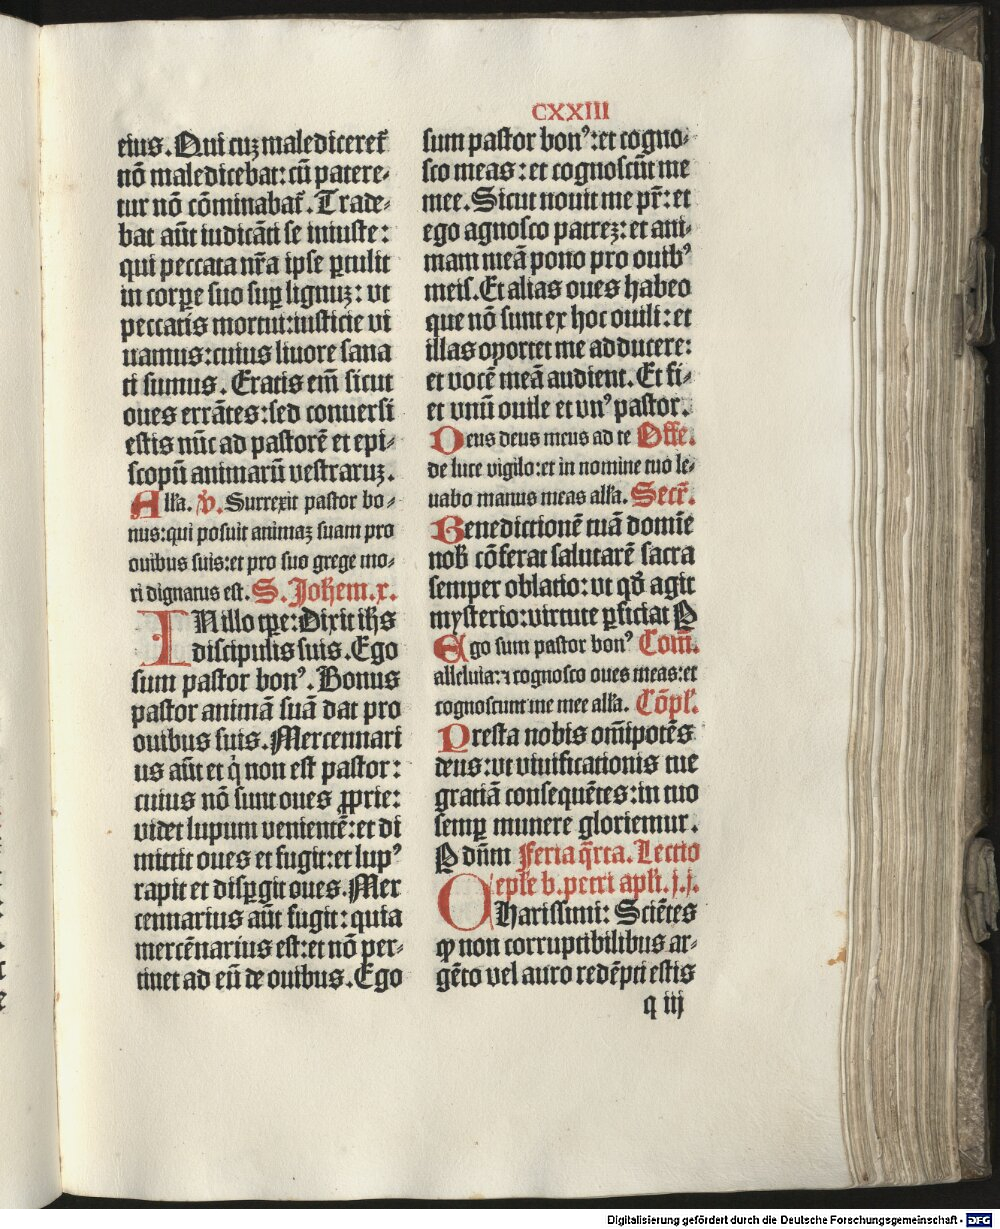 CXXIII
eius. Qui cuʒ malediceret᷑
nō maledicebat: cū patere⸗
tur nō cōminabat᷑. Trade⸗
bat aūt iudicāti se iniuste:
qui peccata nr̄a ipse ꝑtulit
in corꝑe suo suꝑ lignuʒ: vt
peccatis mortui: iusticie vi
uamus: cuius liuore sana
ti sumus. Eratis em̄ sicut
oues errātes: sed conuersi
estis nūc ad pastorē et epi⸗
scopū animarū vestraruʒ.
Alľa. ꝟ. Surrexit pastor bo⸗
nus: qui posuit animaʒ suam pro
ouibus suis: et pro suo grege mo⸗
ri dignatus est. S. Johem. x.
IN illo tꝑe: Dixit ih̄s
discipulis suis. Ego
sum pastor bonꝰ. Bonus
pastor animā suā dat pro
ouibus suis. Mercennari
us aūt et q̇ non est pastor:
cuius nō sunt oues ꝓprie:
videt lupum venientē: et di
mittit oues et fugit: et lupꝰ
rapit et disꝑgit oues. Mer
cennarius aūt fugit: quia
mercēnarius est: et nō per⸗
tinet ad eū de ouibus. Ego
sum pastor bonꝰ: et cogno⸗
sco meas: et cognoscūt me
mee. Sicut nouit me pr̄: et
ego agnosco patreʒ: et ani⸗
mam meā pono pro ouibꝰ
meis. Et alias oues habeo
que nō sunt ex hoc ouili: et
illas oportet me adducere:
et vocē meā audient. Et fi⸗
et vnū ouile et vnꝰ pastor.
Deus deus meus ad te Offe.
de luce vigilo: et in nomine tuo le⸗
uabo manus meas alľa. Secr̄.
Benedictionē tuā domīe
nob̄ cōferat salutarē sacra
semper oblatio: vt qď agit
mysterio: virtute ꝑficiat P
Ego sum pastor bonꝰ Com̄.
alleluia: ⁊ cognosco oues meas: et
cognoscunt me mee alľa. Cōpľ.
Presta nobis om̄ipotēs
deus: vt viuificationis tue
gratiā consequētes: in tuo
semꝑ munere gloriemur.
P dūm Feria q̄rta. Lectio
epľe b. petri apľi. j. j.
CHarissimi: Sciētes
ꝙ non corruptibilibus ar⸗
gēto vel auro redēpti estis
q iij
Digitalisierung gefördert durch die Deutsche Forschungsgemeinschaft - DFG